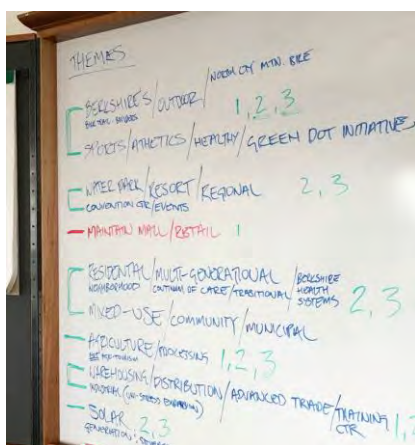 THEMES
BERKSHIRES/OUTDOOR/NORTH CTY MTN. BIKE
1, 2, 3
SPORTS/ATHLETICS/HEALTHY/GREEN DOT INITIATIVE
WATER PARK/RESORT/REGIONAL 2, 3
CONVENTION CTR/EVENTS
MAINTAIN MALL/RETAIL 1
RESIDENTAL/MULTI-GENERATIONAL/BERKSHIRE
NEIGHBORHOOD CONTINUUM OF CARE/TRADITIONAL/HEALTH
SYSTEMS 2, 3
MIXED-USE/COMMUNITY/MUNICIPAL
AGRICULTURE/PROCESSING 1, 2, 3
WAREHOUSING/DISTRIBUTION/ADVANCED TRADE/TRAINING
CTR 1,
INDUSTRIAL
SOLAR 2, 3
GENERATION